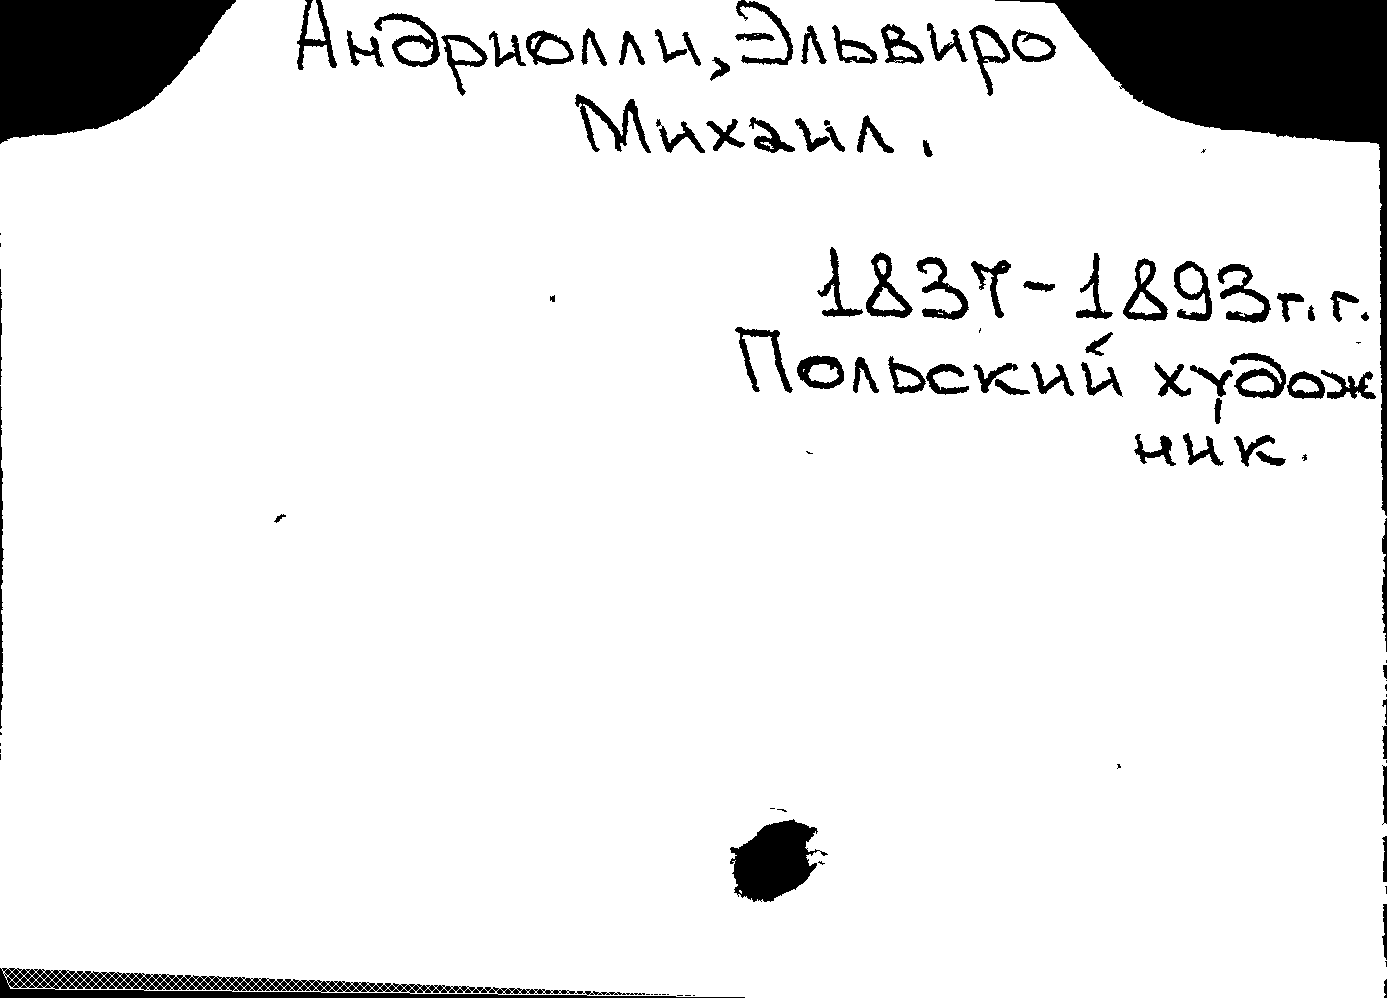 Андриолли, Эльвиро
Михаил.
1837-1893г.г.
Польский худож
ник.